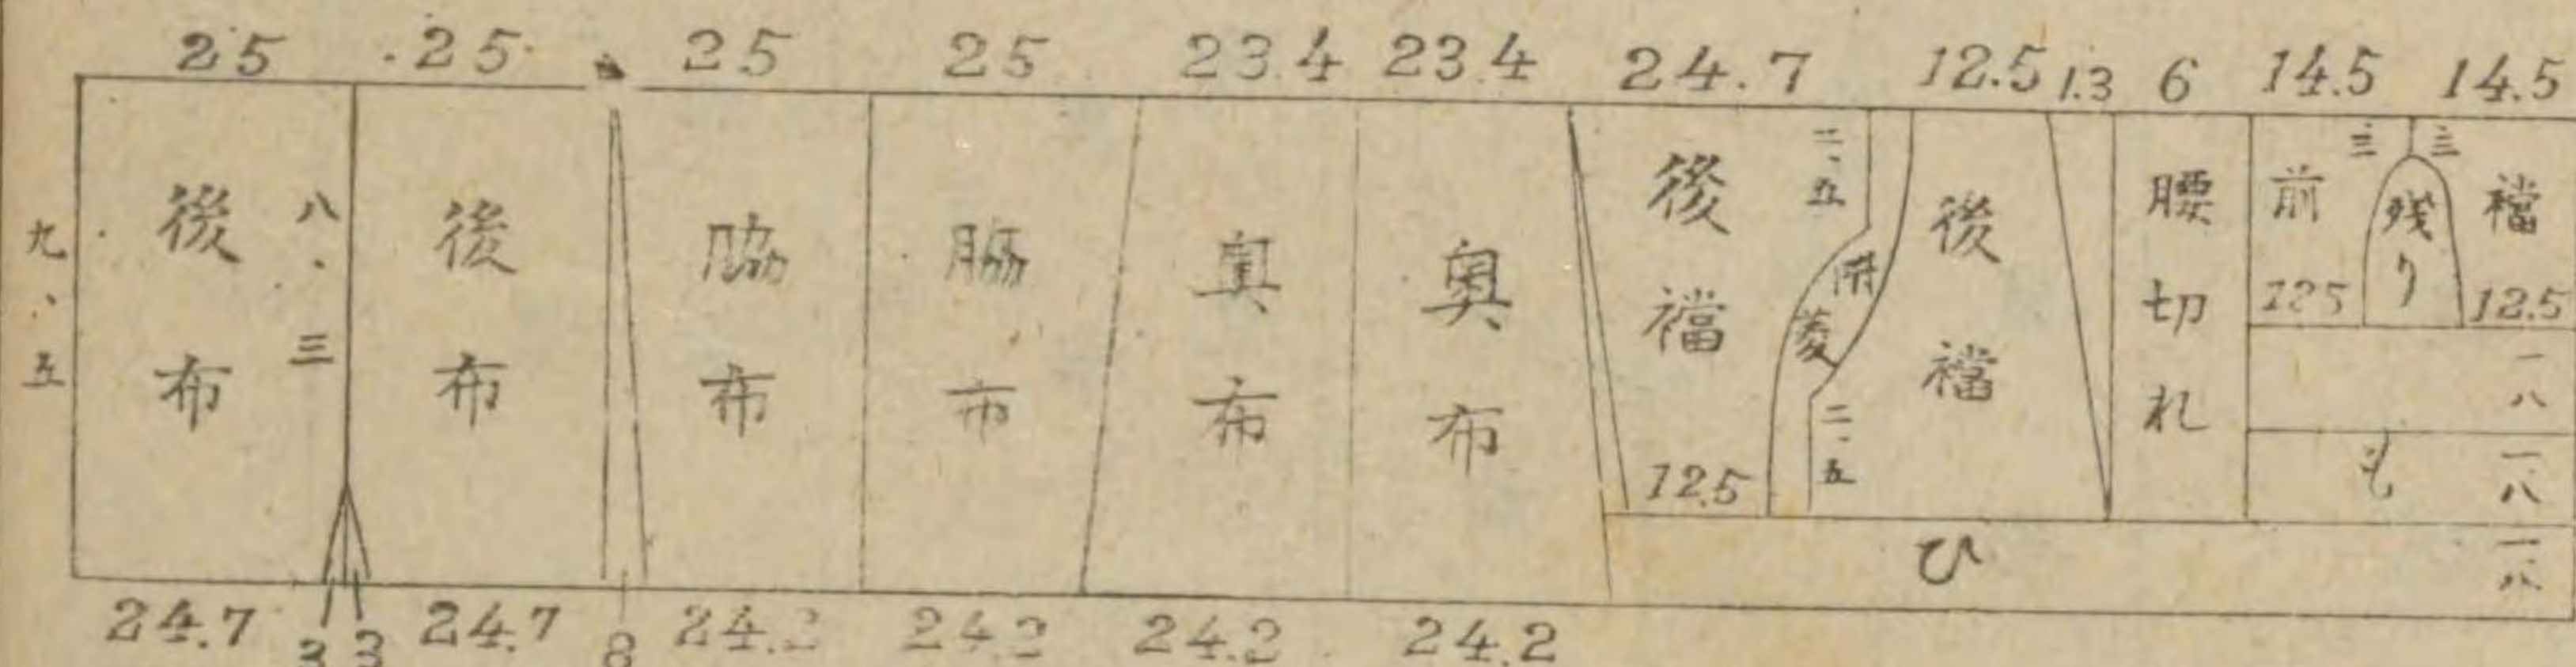 25 25 25 25 23.4 23.4 24.7 12.5 1.3 6 14.5 14.5
九、五
後布
八、三
後布
脇布
脇布
奥布
奥布
後襠
12.5
二、五
開菱
二、五
後襠
腰切れ
前
12.5
三
残り
三
襠
12.5
一八
も
一、八
ひ
一、八
24.7 3 3 24.7 8 24.2 24.2 24.2 24.2